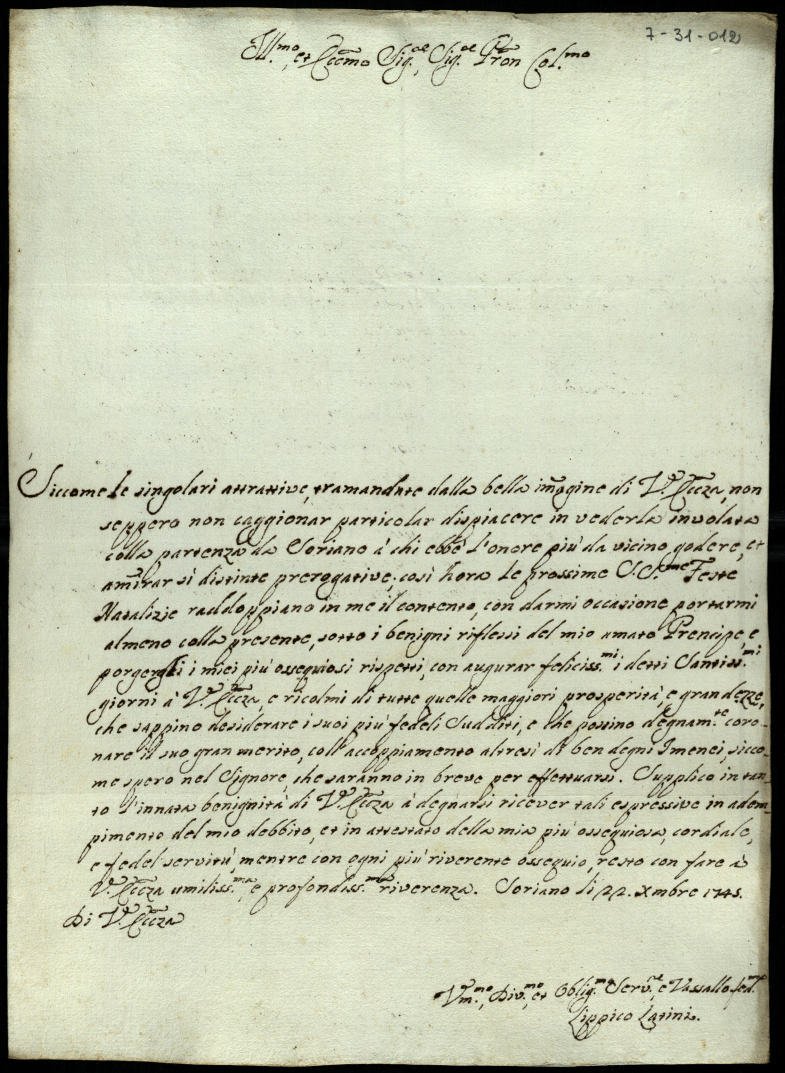 7-31-012
Ill.mo, et Eccmo Sig.re, Sig.re Pron Col.mo
Siccome le singolari attrattive, tramandate dalla bella imagine di V.Eccza, non
seppero non caggionar particolar dispiacere in vederla involata
colla partenza da Soriano à chi ebbe l'onore più da vicino godere, et
amirar sì distinte prerogative; così hora le prossime S.S.me Feste
Natalizie raddoppiano in me il contento, con darmi occasione portarmi
almeno colla presente, sotto i benigni riflessi del mio amato Prencipe, e
porgergli i miei più ossequiosi rispetti, con augurar feliciss.mi i detti Santiss.mi
giorni à V.Eccza, e ricolmi di tutte quelle maggiori prosperità, e grandezze,
che sappino desiderare i suoi più fedeli Sudditi, e che possino degnam.te coro-
nare il suo gran merito, coll'accoppiamento altresì di ben degni Imenei, sicco-
me spero nel Signore, che saranno in breve per effettuarsi. Supplico in tan-
to l'innata benignità di V.Eccza à degnarsi ricever tali espressive in adem-
pimento del mio debbito, et in attestato della mia più ossequiosa, cordiale,
e fedel servitù, mentre con ogni più riverente ossequio, resto con fare à
V.Eccza umiliss.ma, e profondiss.ma riverenza. Soriano li 22. Xmbre 1745.
Di V.Eccza
Vm.mo, Div.mo, et Oblig.mo Serv.re, e Vassallo fed.mo
Lippico Latini.